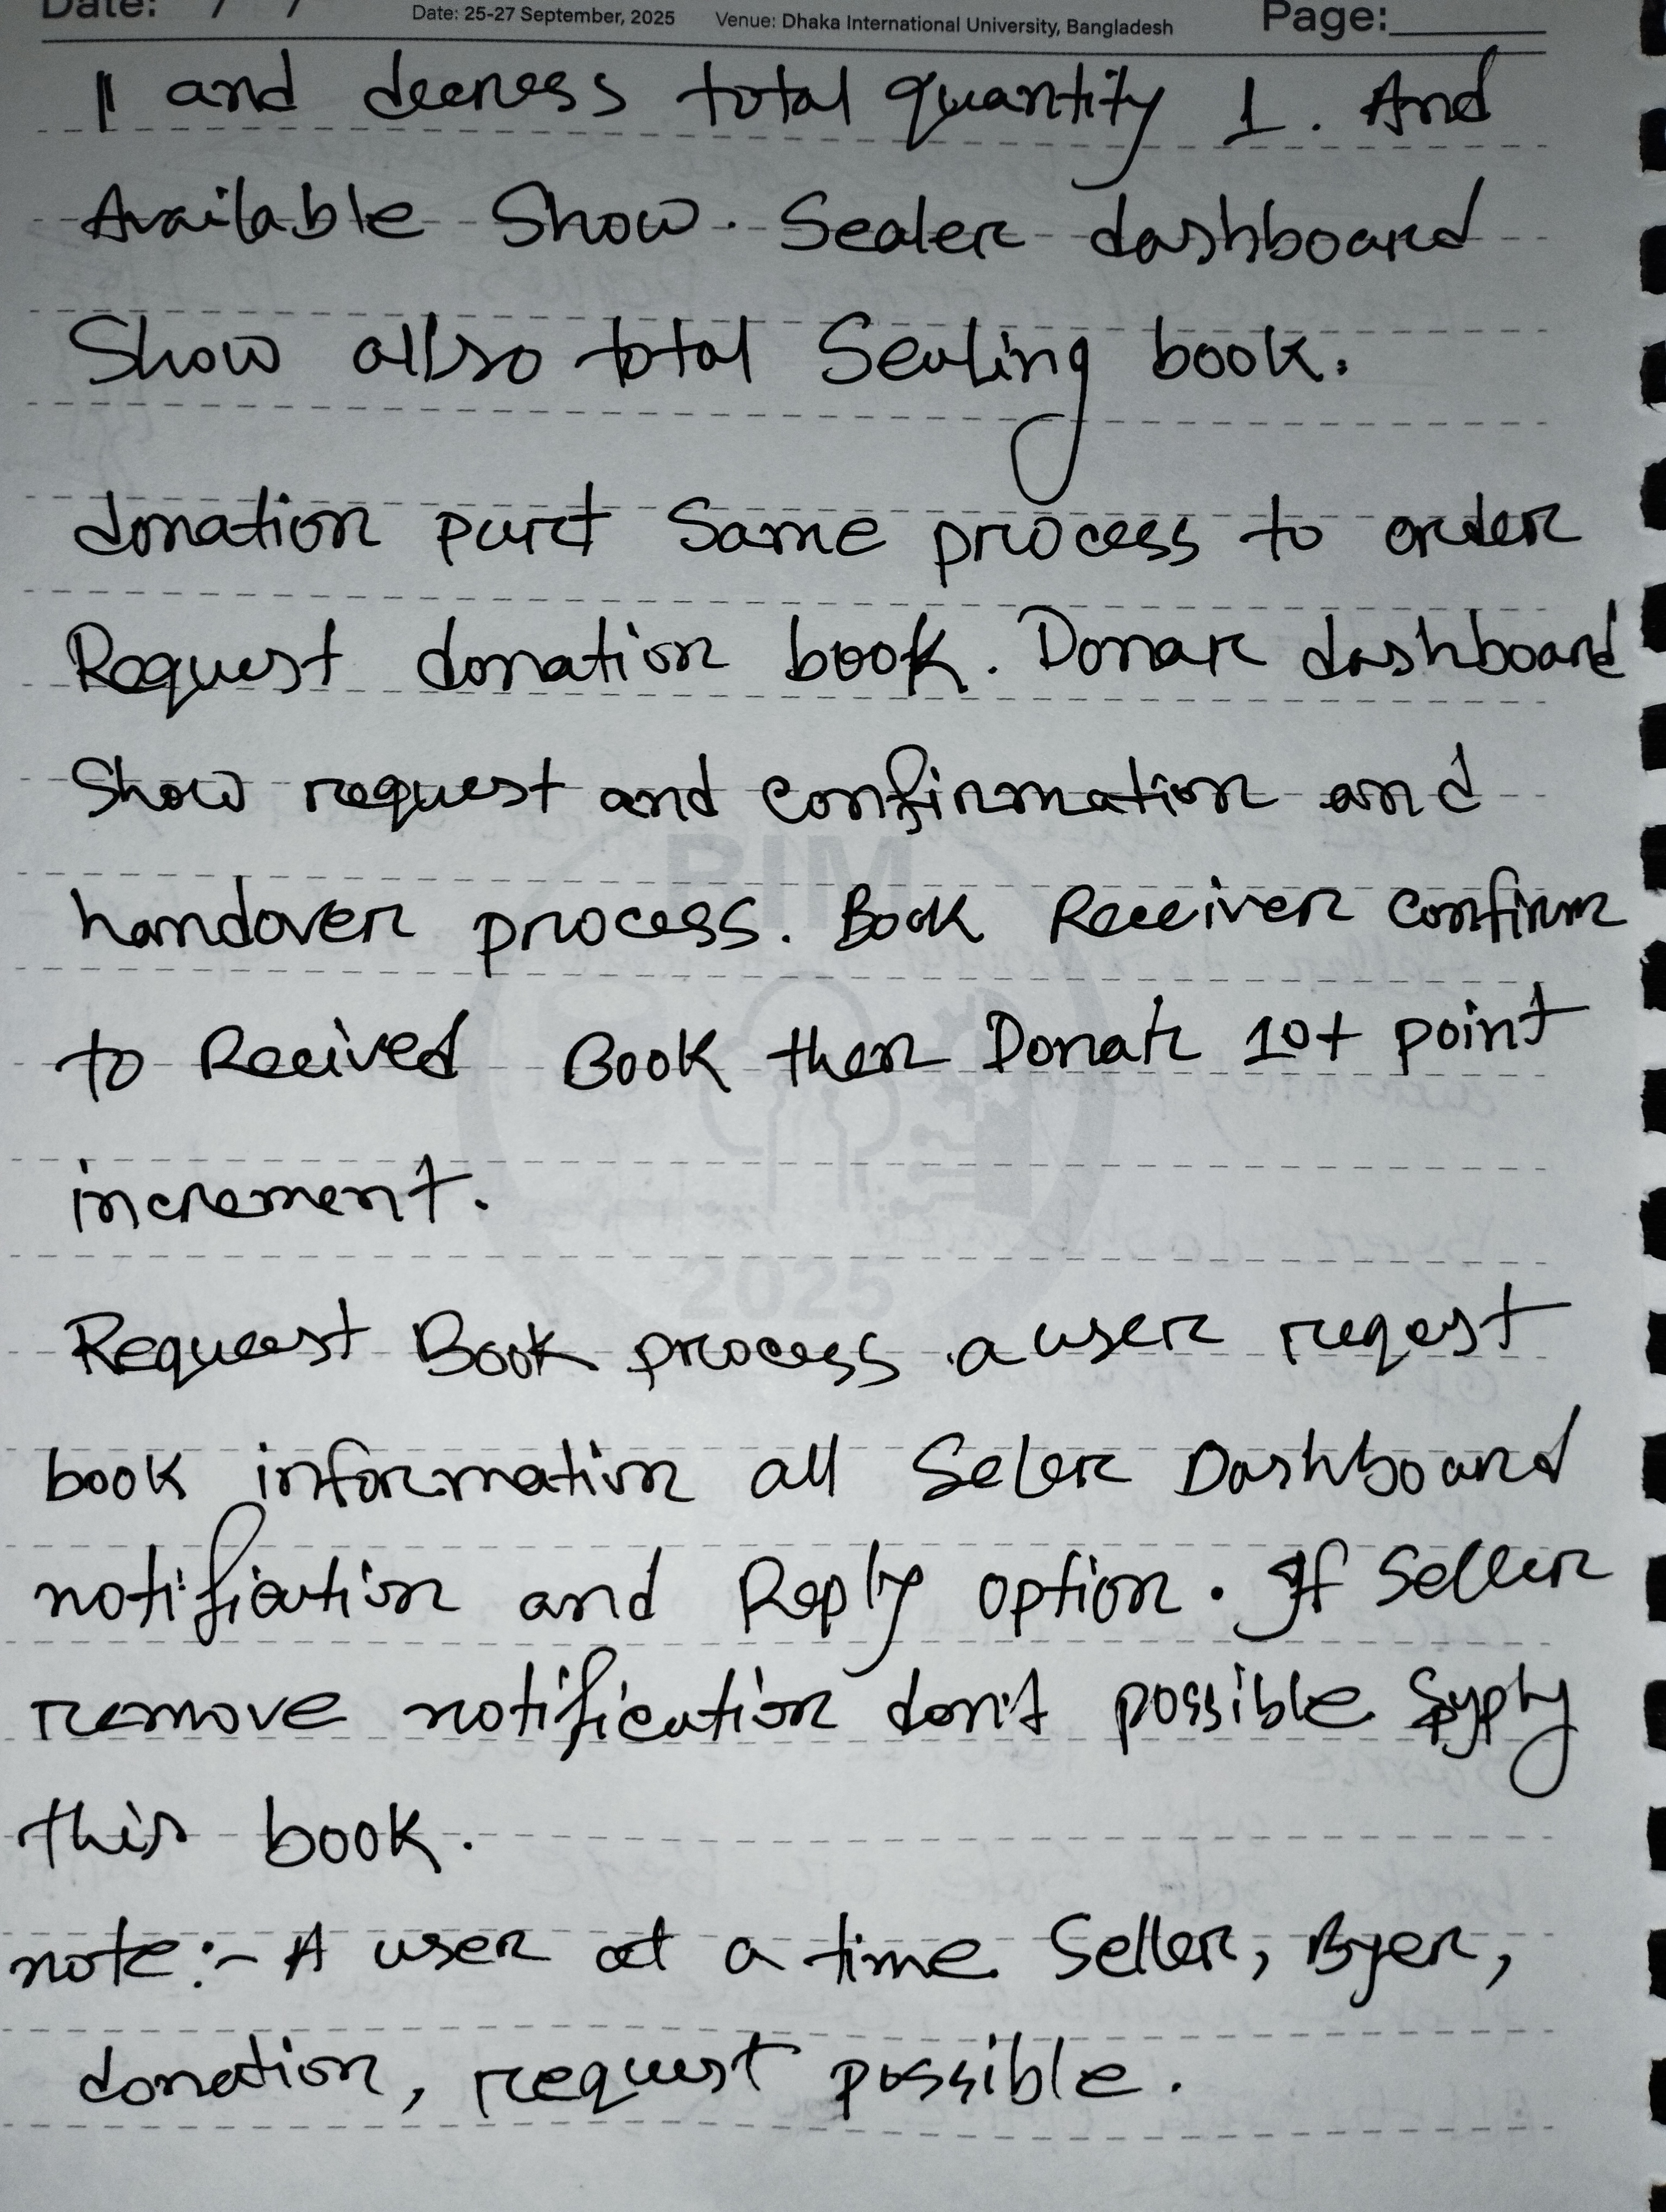 Date: / / Date: 25-27 September, 2025 Venue: Dhaka International University, Bangladesh Page:
and decress total quantity 1. And
Available Show. Sealer dashboard
Show also total Sealing book.
donation part Same process to order
Request donation book. Donar dashboard
Show request and confirmation and
handover process. Book Receiver Confirm
to Recived Book then Donate 10+ point
increment.
Request Book process a user reqest
book information all Seler Dashboard
notification and Reply option. If Seller
remove notification don't possible
this book.
note:- A user at a time Seller, Byer,
donation, request possible.
BIM
2025